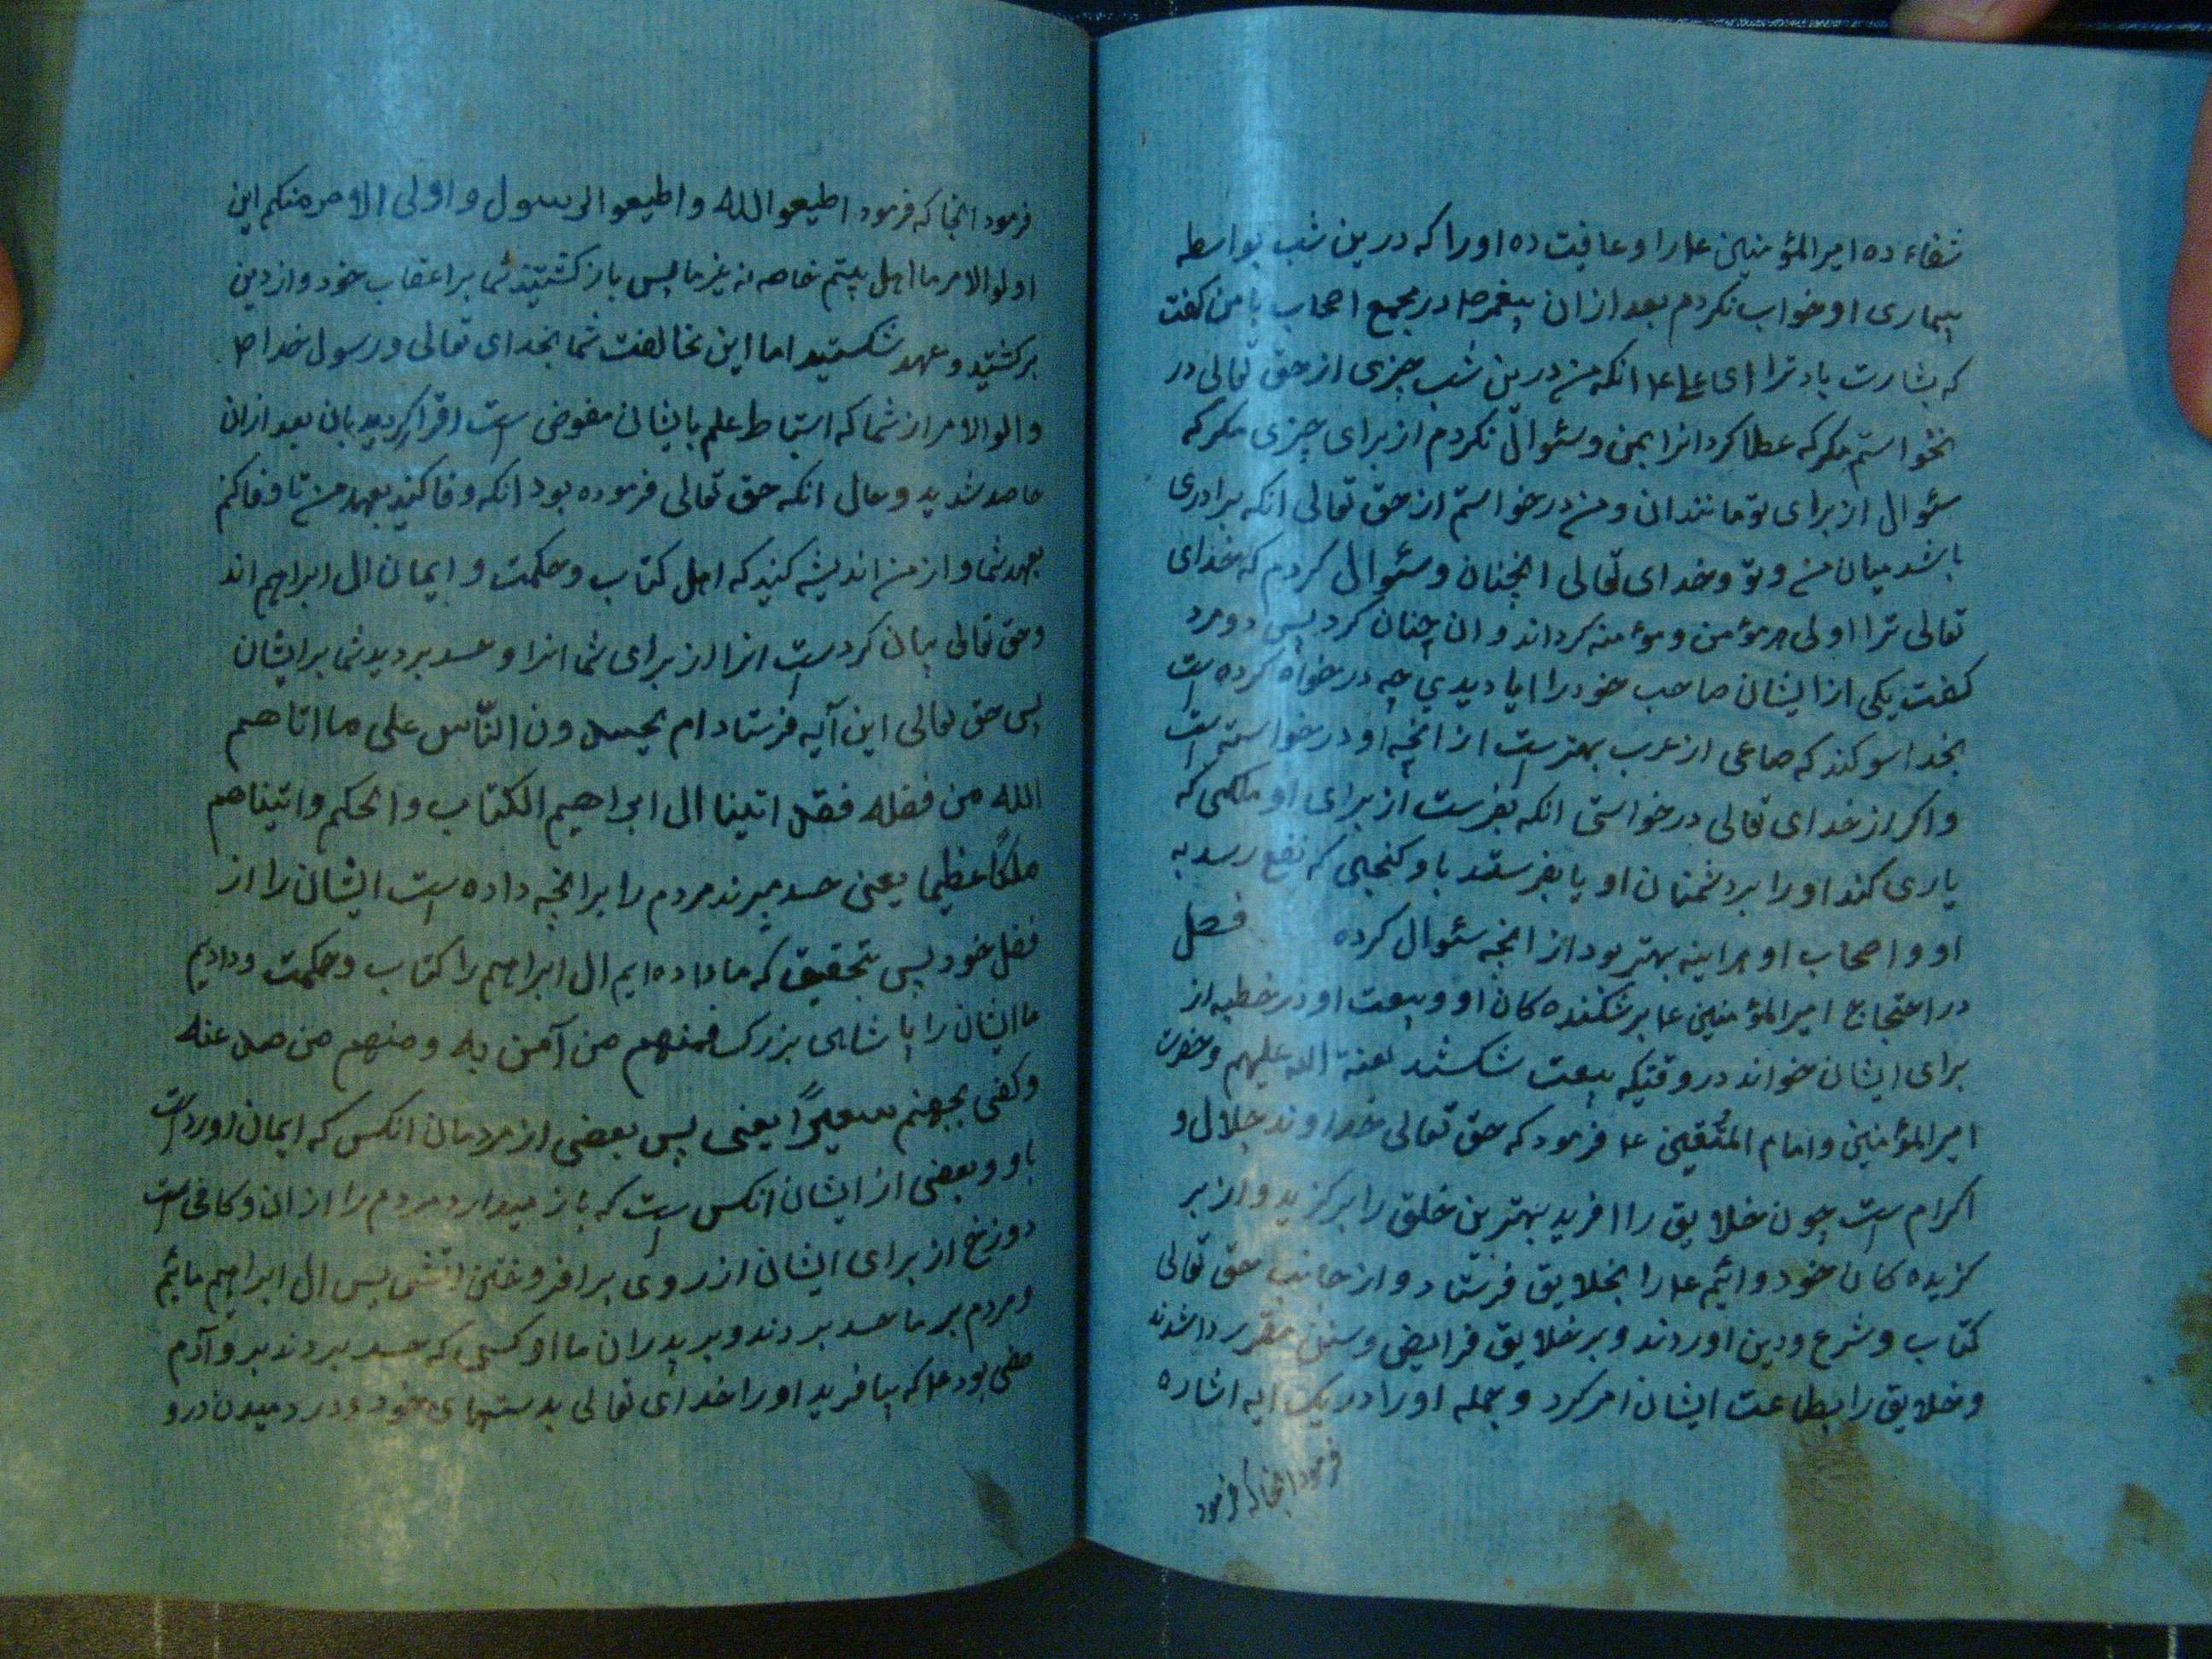 شفاء ده امیرالمؤمنین ع را و عافیت ده اورا که درین شب بواسطه
بیماری او خواب نکردم بعد ازان پیغمبر ص در مجمع اصحاب با من کفت
که بشارت باد ترا ای علی ع انکه من درین شب چیزی از حق تعالی در
نخواستم مکر که عطا کرد انرا بمن و سئوال نکردم از برای چیزی مکر که
سئوال از برای تو مانند ان و من درخواستم از حق تعالی انکه برادری
باشد میان من و تو و خدای تعالی انچنان و سئوال کردم که خدای
تعالی ترا اولی هر مؤمن و مؤمنه کرداند و ان چنان کرد پس دو مرد
کفت یکی از ایشان صاحب خود را ایا دیدی چه درخواه کرده است
بخدا سوکند که صاعی از عرب بهتر ست از انچه او درخواسته است
و اکر از خدای تعالی درخواستی انکه بفرست از برای او ملکی که
یاری کند اورا بر دشمنان او یا بفرستد باو کنجی که نفع رسد به
او و اصحاب او هراینه بهتر بود از انچه سئوال کرده فصل
در احتجاج امیرالمؤمنین ع بر شکننده کان او و بیعت او در خطبه از
برای ایشان خواند در وقتیکه بیعت شکستند لعنة الله علیهم و حضرت
امیرالمؤمنین و امام المتقین ع فرمود که حق تعالی خداوند جلال و
اکرام ست چون خلایق را افرید بهترین خلق را برکزید و از بر
کزیده کان خود و ائمه ع را بخلایق فرستاد و از جانب حق تعالی
کتاب و شرع و دین اوردند و بر خلایق فرایض و سنن مقرر داشتند
و خلایق را بطاعت ایشان امر کرد و جمله اورا در یک ایه اشاره
فرمود انجا که فرمود
فرمود انجا که فرمود اطیعوا الله و اطیعوا الرسول و اولی الامر منکم این
اولوالامر ما اهل بیتم خاصه نه غیر ما پس باز کشتید شما بر اعقاب خود و از دین
برکشتید و عهد شکستید اما این مخالفت شما بخدای تعالی و رسول خدا ص
و الوالامر از شما که استنباط علم بایشان مفوض است اقرار کردید بان بعد ازان
حاسد شدید و حال انکه حق تعالی فرموده بود انکه وفا کنید بعهد من تا وفا کنم
بعهد شما و از من اندیشه کنید که اهل کتاب و حکمت و ایمان ال ابراهیم اند
و حق تعالی بیان کردست انرا از برای شما انرا و حسد بردید شما بر ایشان
پس حق تعالی این آیه فرستاد ام یحسدون النّاس علی ما اتاهم
الله من فضله فقد اتینا ال ابراهیم الکتاب و الحکم و اتیناهم
ملکًا عظیما یعنی حسد میبرند مردم را بر انچه داده است ایشان را از
فضل خود پس بتحقیق که ما داده ایم ال ابراهیم را کتاب و حکمت و دادیم
ما ایشان را پاشاهی بزرک فمنهم من آمن به و منهم من صد عنه
و کفی بجهنم سعیرًا یعنی پس بعضی از مردمان انکس که ایمان اوردست
باو و بعضی از ایشان انکس است که باز میدارد مردم را از ان و کافی است
دوزخ از برای ایشان از روی برافروختن اتش پس ال ابراهیم مائیم
و مردم بر ما حسد بردند و بر پدران ما او کسی که حسد بردند بر و آدم
صفی بود ع که بیافرید اورا خدای تعالی بدستهای خود و در دمیدن درو